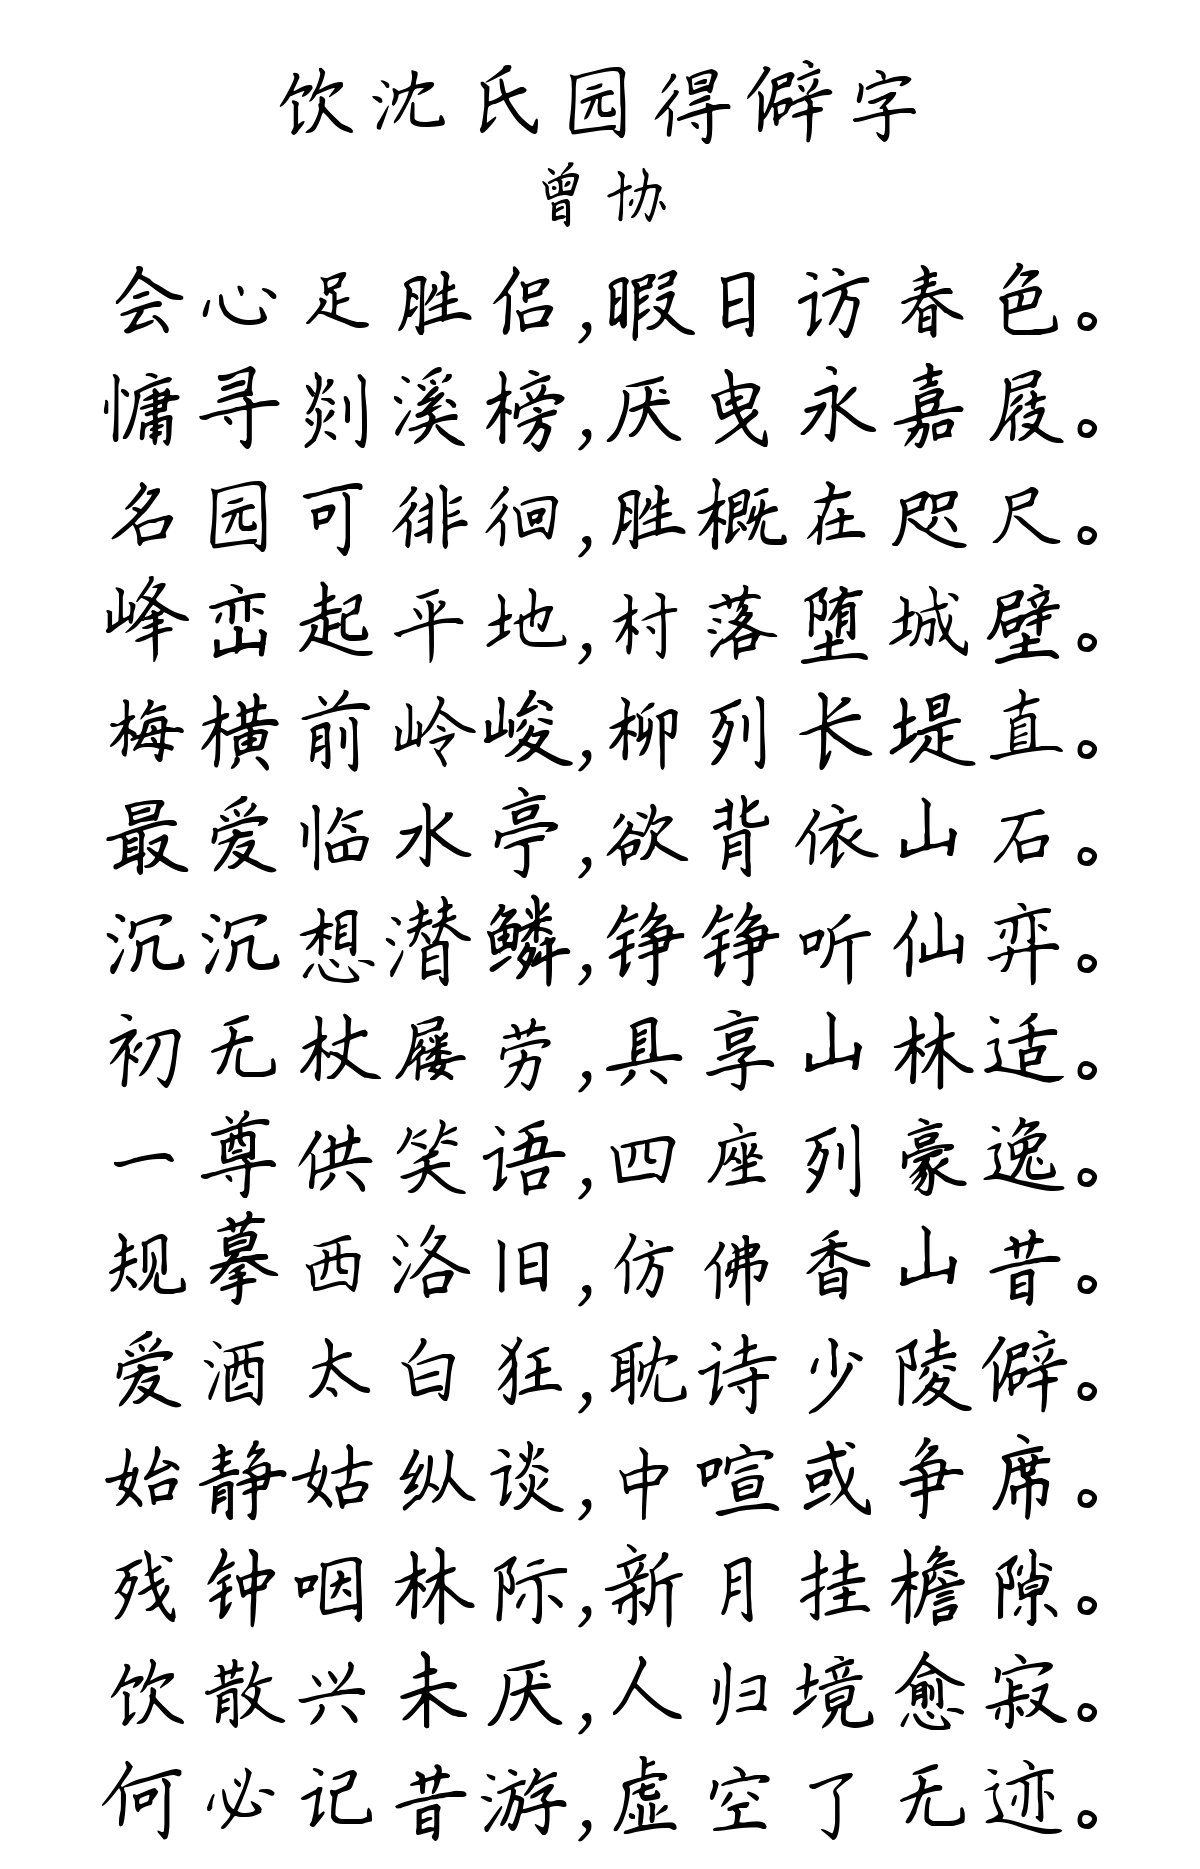 饮沈氏园得僻字
曾协
会心足胜侣,暇日访春色。
慵寻剡溪榜,厌曳永嘉屐。
名园可徘徊,胜概在咫尺。
峰峦起平地,村落堕城壁。
梅横前岭峻,柳列长堤直。
最爱临水亭,欲背依山石。
沉沉想潜鳞,铮铮听仙弈。
初无杖屦劳,具享山林适。
一尊供笑语,四座列豪逸。
规摹西洛旧,仿佛香山昔。
爱酒太白狂,耽诗少陵僻。
始静姑纵谈,中喧或争席。
残钟咽林际,新月挂檐隙。
饮散兴未厌,人归境愈寂。
何必记昔游,虚空了无迹。